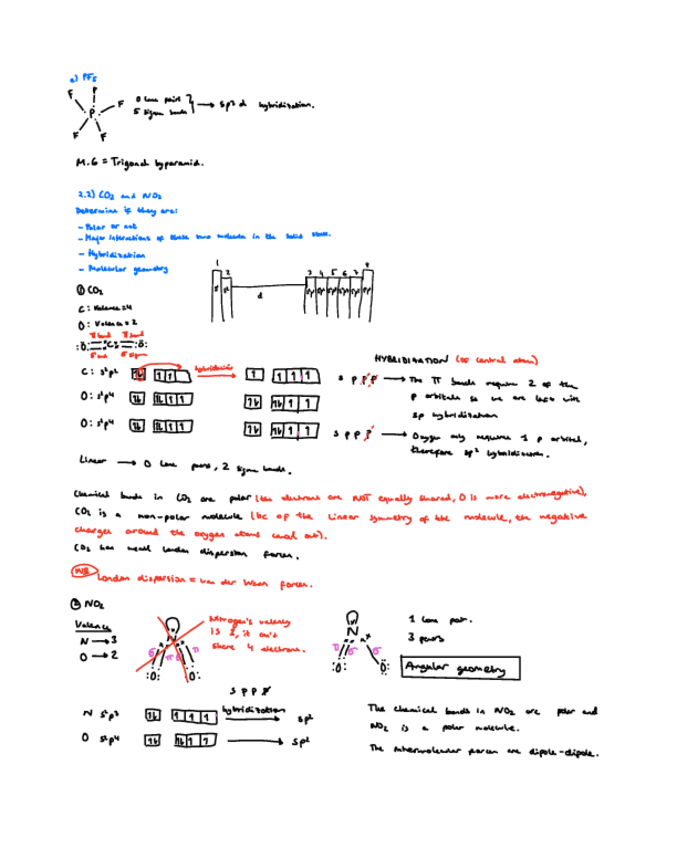 e) PF5
F
F
F
P
F
F
0 lone pairs
5 sigma bonds
→ sp3 d hybridization.
M.G = Trigonal bypiramid.
2.2) CO2 and NO2
Determine if they are:
- Polar or not
- Major interactions of these two molecules in the solid state.
- Hybridization
- Molecular geometry
1 2 3 4 5 6 7 8
d
① CO2
C: Valence=4
O: Valence=2
π bond π bond
:O=C=O:
σ bond σ sigma
HYBRIDIZATION (of central atom)
C: s²p² hybridization s p p p → The π bonds require 2 of the
p orbitals so we are left with
sp hybridization
O: s²p⁴
O: s²p⁴ s p p p → Oxygen only requires 1 p orbital,
therefore sp² hybridization.
Linear → 0 lone pairs, 2 sigma bonds.
Chemical bonds in CO2 are polar (the electrons are NOT equally shared, O is more electronegative),
CO2 is a non-polar molecule (bc of the linear symmetry of the molecule, the negative
charges around the oxygen atoms cancel out).
CO2 has weak London dispersion forces.
NB London dispersion = van der Waals forces.
② NO2
Valence
N → 3
O → 2
Nitrogen's valency
is 3, it can't
share 4 electrons.
:O: O:
N
π σ σ
:O: O:
1 lone pair.
3 pairs
Angular geometry
s p p p
N s²p³ hybridization → sp²
O s²p⁴ → sp²
The chemical bonds in NO2 are polar and
NO2 is a polar molecule.
The intermolecular forces are dipole-dipole.